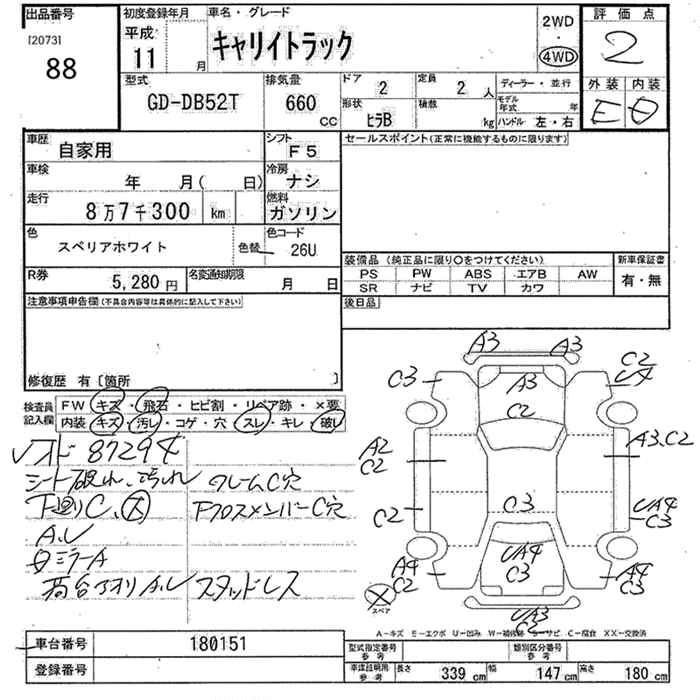 出品番号
[2073]
88
初度登録年月
平成
11 月
車名・グレード
キャリイトラック
2WD
・
4WD
評価点
2
外装 内装
E D
型式
GD-DB52T
排気量
660 CC
ドア 2
形状 ヒラB
定員 2 人
積載 kg
ディーラー・並行
モデル年式 年
ハンドル 左・右
車歴
自家用
シフト
F5
車検
年 月( 日)
冷房
ナシ
走行
8万7千300 km
燃料
ガソリン
色
スペリアホワイト
色替
色コード
26U
R券
5,280 円
名変通知期限
月 日
セールスポイント(正常に機能するものに限ります)
装備品 (純正品に限り○をつけてください)
PS PW ABS エアB AW
SR ナビ TV カワ
新車保証書
有・無
後日品
注意事項申告欄(不具合内容等は具体的に記入して下さい)
修復歴 有〔箇所 〕
検査員記入欄
FW キズ・飛石・ヒビ割・リペア跡・×要
内装 キズ・汚レ・コゲ・穴・スレ・キレ・破レ
87294
シート破れ、汚れ フレームC穴
下廻りC、大 FクロスメンバーC穴
A.U
ミラーA
荷台アオリA.U スタッドレス
A3 A3
C3 A3 C2 U4
C2
A2 C2 A3.C2
C2 C3 UA4 C3
A4 C2 UA4 C3 A4 C3
スペア
UA3 C2
A−キズ E−エクボ U−凹み W−補修跡 S−サビ C−腐食 XX−交換済
車台番号 180151
登録番号
型式指定番号 参考
類別区分番号 参考
車検証明用 参考
長さ 339 cm 幅 147 cm 高さ 180 cm